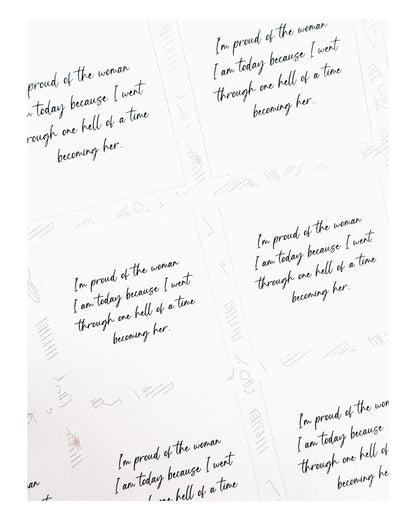 proud of the woman
today because I went
rough one hell of a time
becoming her.
I'm proud of the woman
I am today because I went
through one hell of a time
becoming her.
I'm proud of the woman
I am today because I went
through one hell of a time
becoming her.
I'm proud of the woman
I am today because I went
through one hell of a time
becoming her.
I'm proud of the woman
I am today because I went
through one hell of a time
I'm proud of the
I am today because
through one hell of
becoming